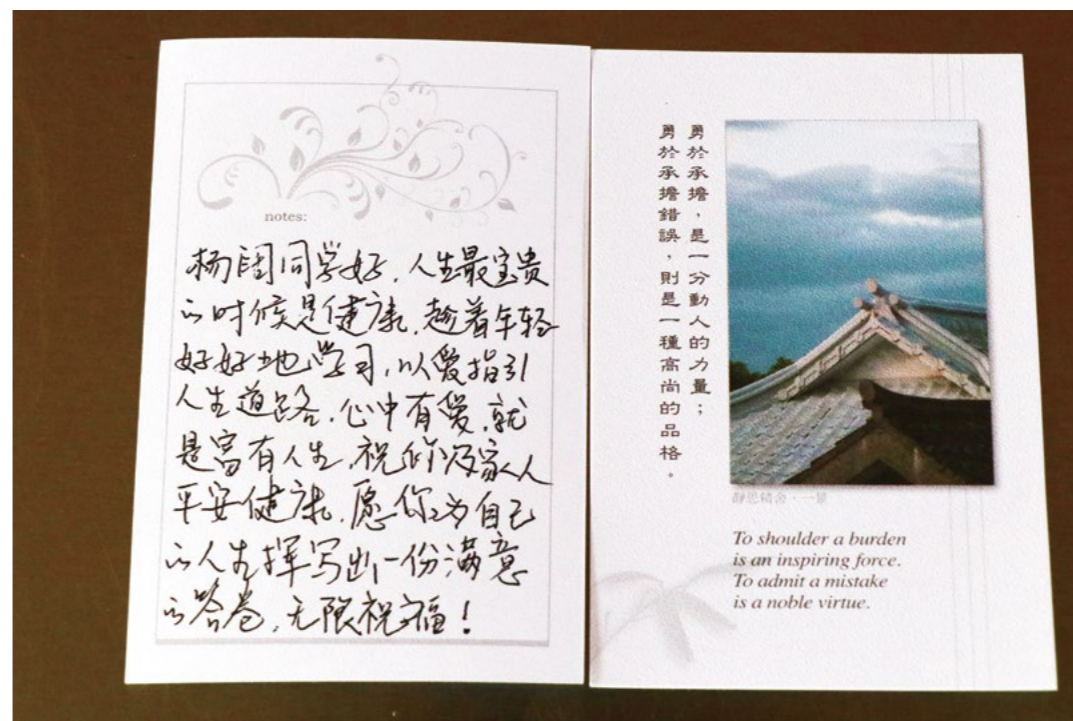 notes:
杨阔同学好，人生最宝贵
的时候是健康，趁着年轻
好好地学习，以爱指引
人生道路，心中有爱，就
是富有人生，祝你及家人
平安健康，愿你为自己
的人生挥写出一份满意
的答卷，无限祝福！
勇於承擔，是一分動人的力量；
勇於承擔錯誤，則是一種高尚的品格。
靜思精舍·一景
To shoulder a burden
is an inspiring force.
To admit a mistake
is a noble virtue.